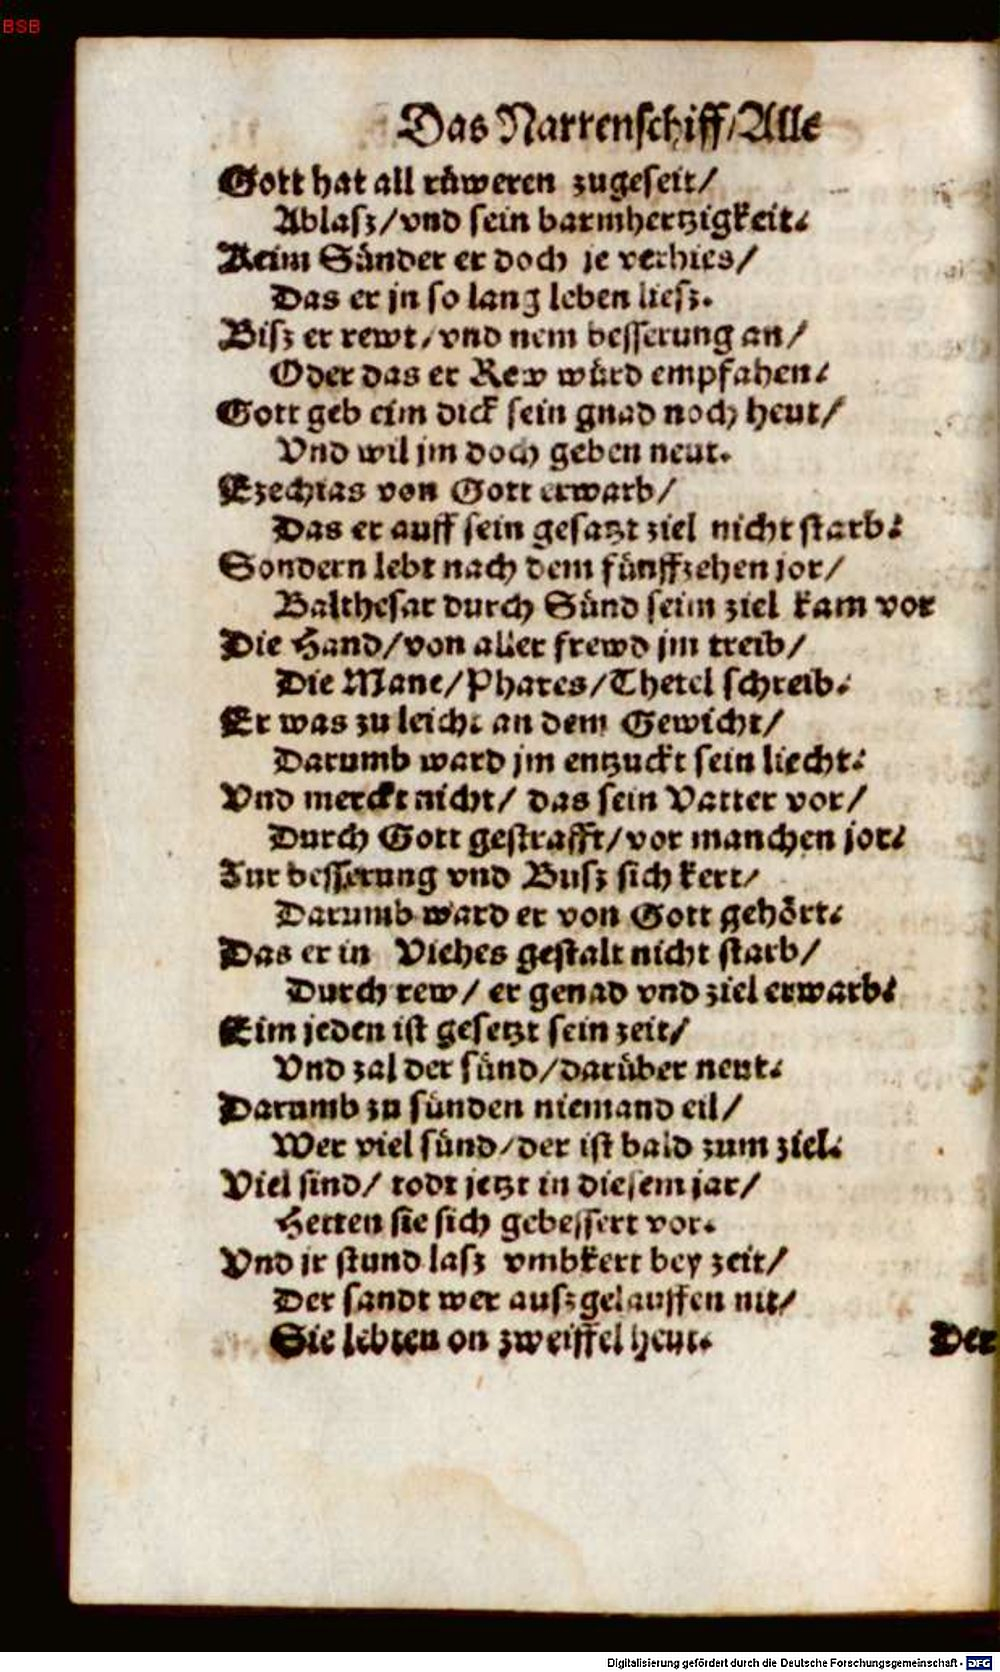 BSB
Das Narrenschiff/Alle
Gott hat all rüweren zugeseit/
Ablasz/vnd sein barmhertzigkeit.
Keim Sünder er doch je verhies/
Das er jn so lang leben liesz.
Bisz er rewt/vnd nem besserung an/
Oder das er Rew würd empfahen.
Gott geb eim dick sein gnad noch heut/
Vnd wil jm doch geben neut.
Ezechias von Gott erwarb/
Das er auff sein gesatzt ziel nicht starb.
Sondern lebt nach dem fünffzehen jor/
Balthesar durch Sünd seim ziel kam vor
Die Hand/von aller frewd jm treib/
Die Mane/Phares/Thetel schreib.
Er was zu leicht an dem Gewicht/
Darumb ward jm entzuckt sein liecht.
Vnd merckt nicht/ das sein Vatter vor/
Durch Gott gestrafft/vor manchen jor.
Zur besserung vnd Busz sich kert/
Darumb ward er von Gott gehört.
Das er in Viehes gestalt nicht starb/
Durch rew/ er genad vnd ziel erwarb.
Eim jeden ist gesetzt sein zeit/
Vnd zal der sünd/darüber neut.
Darumb zu sünden niemand eil/
Wer viel sünd/der ist bald zum ziel.
Viel sind/ todt jetzt in diesem jar/
Hetten sie sich gebessert vor.
Vnd jr stund lasz vmbkert bey zeit/
Der sandt wer auszgelauffen nit/
Sie lebten on zweiffel heut.
Der
Digitalisierung gefördert durch die Deutsche Forschungsgemeinschaft - DFG